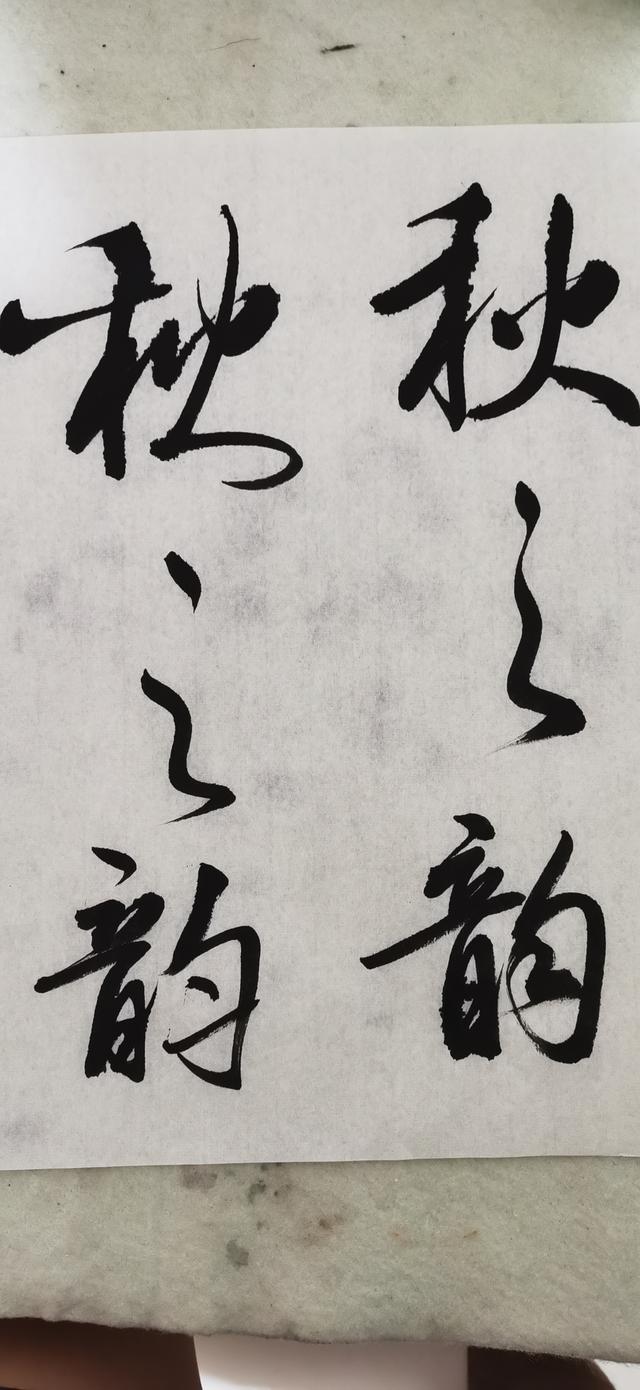 秋之韵
秋之韵